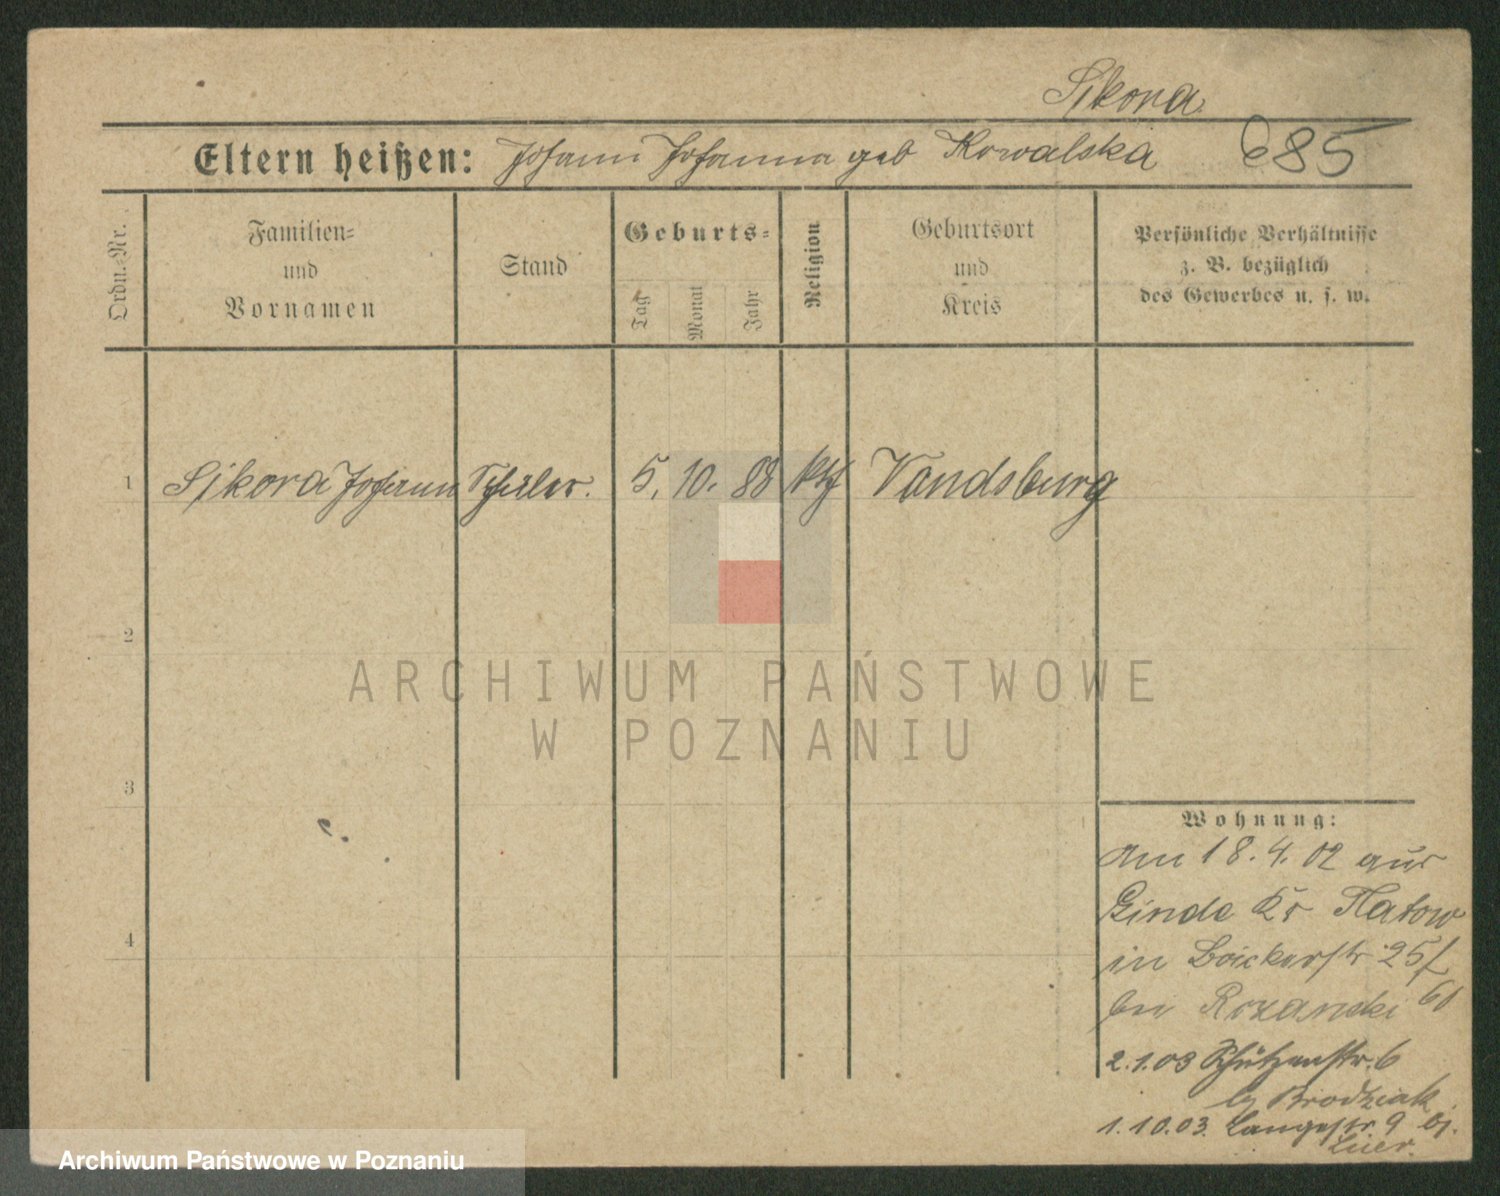 Sikora
Eltern heißen: Johann Johanna geb Kowalska 685
Ordn.-Nr.
Familien-
und
Vornamen
Stand
Geburts-
Tag
Monat
Jahr
Religion
Geburtsort
und
Kreis
Persönliche Verhältnisse
z. B. bezüglich
des Gewerbes u. s. w.
1 Sikora Johann Schüler. 5. 10. 88 kth Vandsburg
2
ARCHIWUM PAŃSTWOWE
W POZNANIU
3
4
Wohnung:
Am 18.4.02 aus
Kr Flatow
in Bäckerstr 25
bei Rozanski
2.1.03 Schützenstr. 6
Brodziak
1.10.03. Langestr 9 bei
Archiwum Państwowe w Poznaniu